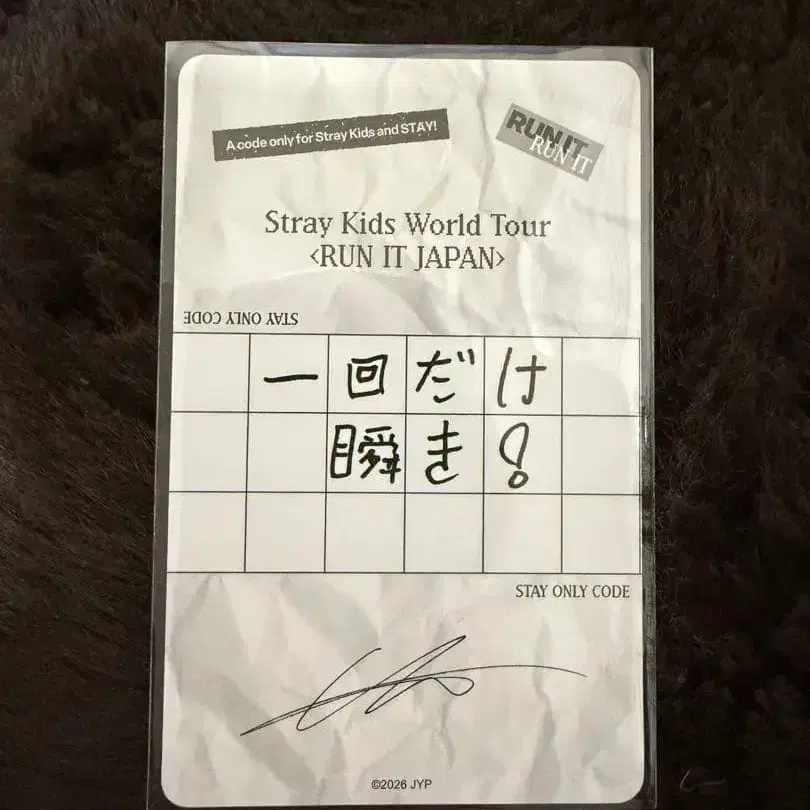 A code only for Stray Kids and STAY!
RUN IT
RUN IT
Stray Kids World Tour
<RUN IT JAPAN>
STAY ONLY CODE
一回だけ
瞬き!
STAY ONLY CODE
©2026 JYP